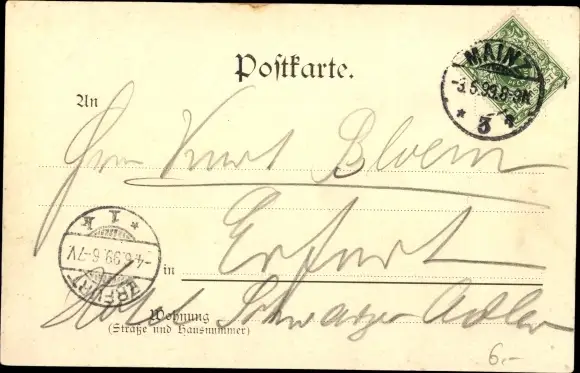 Postkarte.
MAINZ
-3.5.99.8-9N.
* 3 *
An
Herrn Kurt Bloem
* 1 k
-4.5.99.6-7V
ERFURT
Erfurt
in
Hotel Schwarzer Adler
Wohnung
(Straße und Hausnummer)
6.-